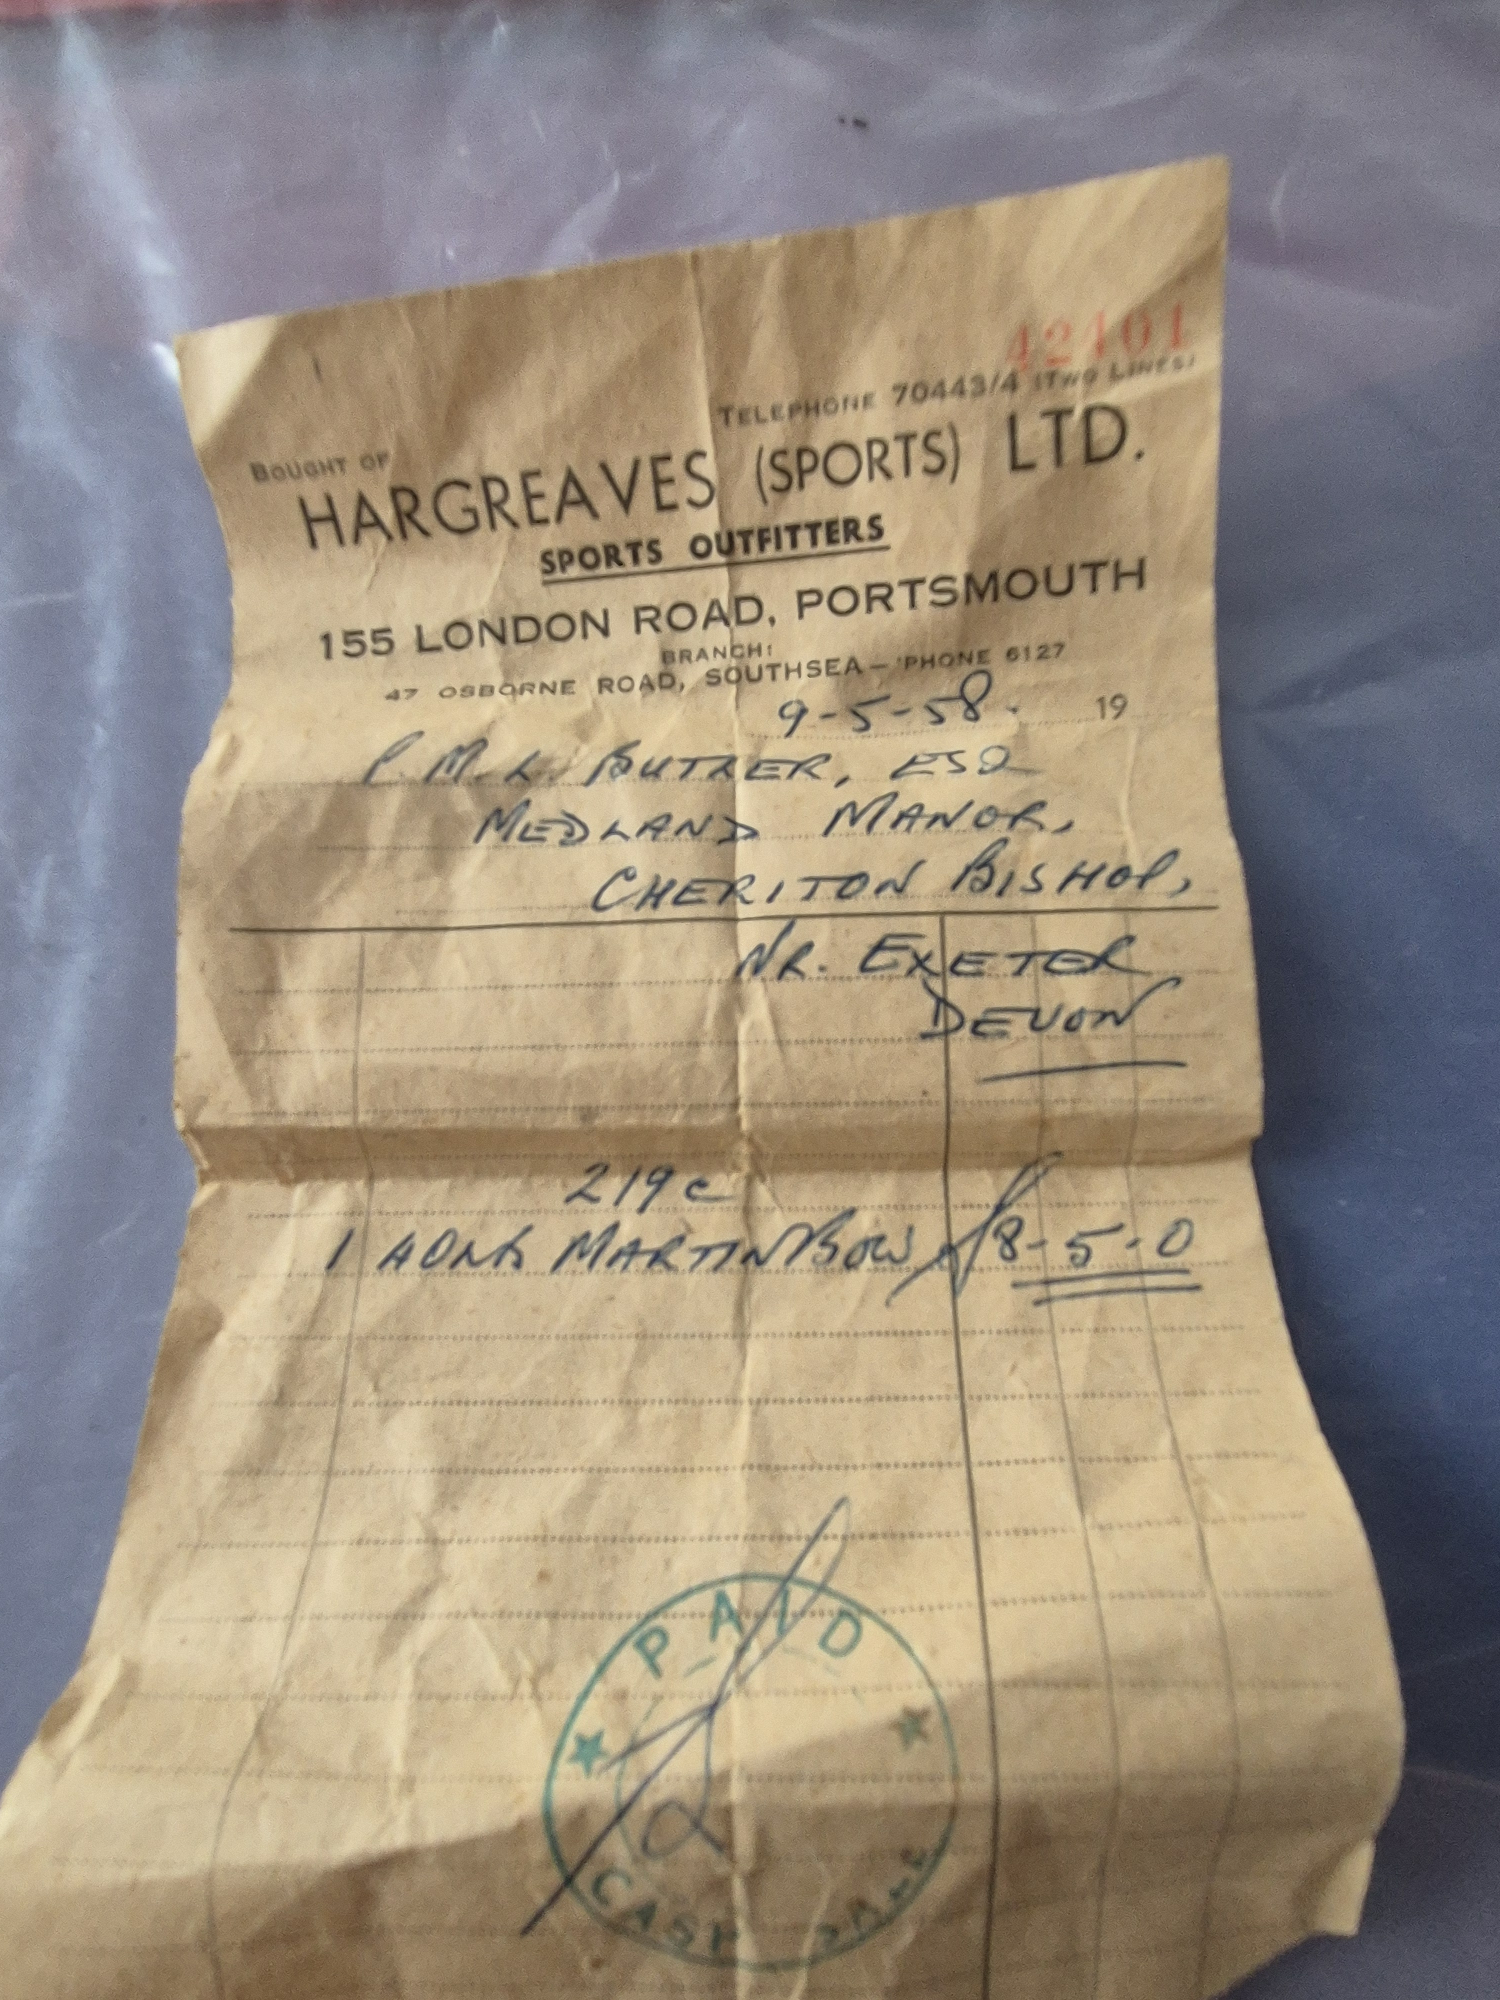 42401
TELEPHONE 70443/4 (TWO LINES)
BOUGHT OF
HARGREAVES (SPORTS) LTD.
SPORTS OUTFITTERS
155 LONDON ROAD, PORTSMOUTH
BRANCH:
47 OSBORNE ROAD, SOUTHSEA — 'PHONE 6127
9-5-58. 19
P. M. L. BUTLER, ESQ
MEDLAND MANOR,
CHERITON BISHOP,
NR. EXETER
DEVON
219c
1 MARTIN BOW 8-5-0
PAID
CASH SALE